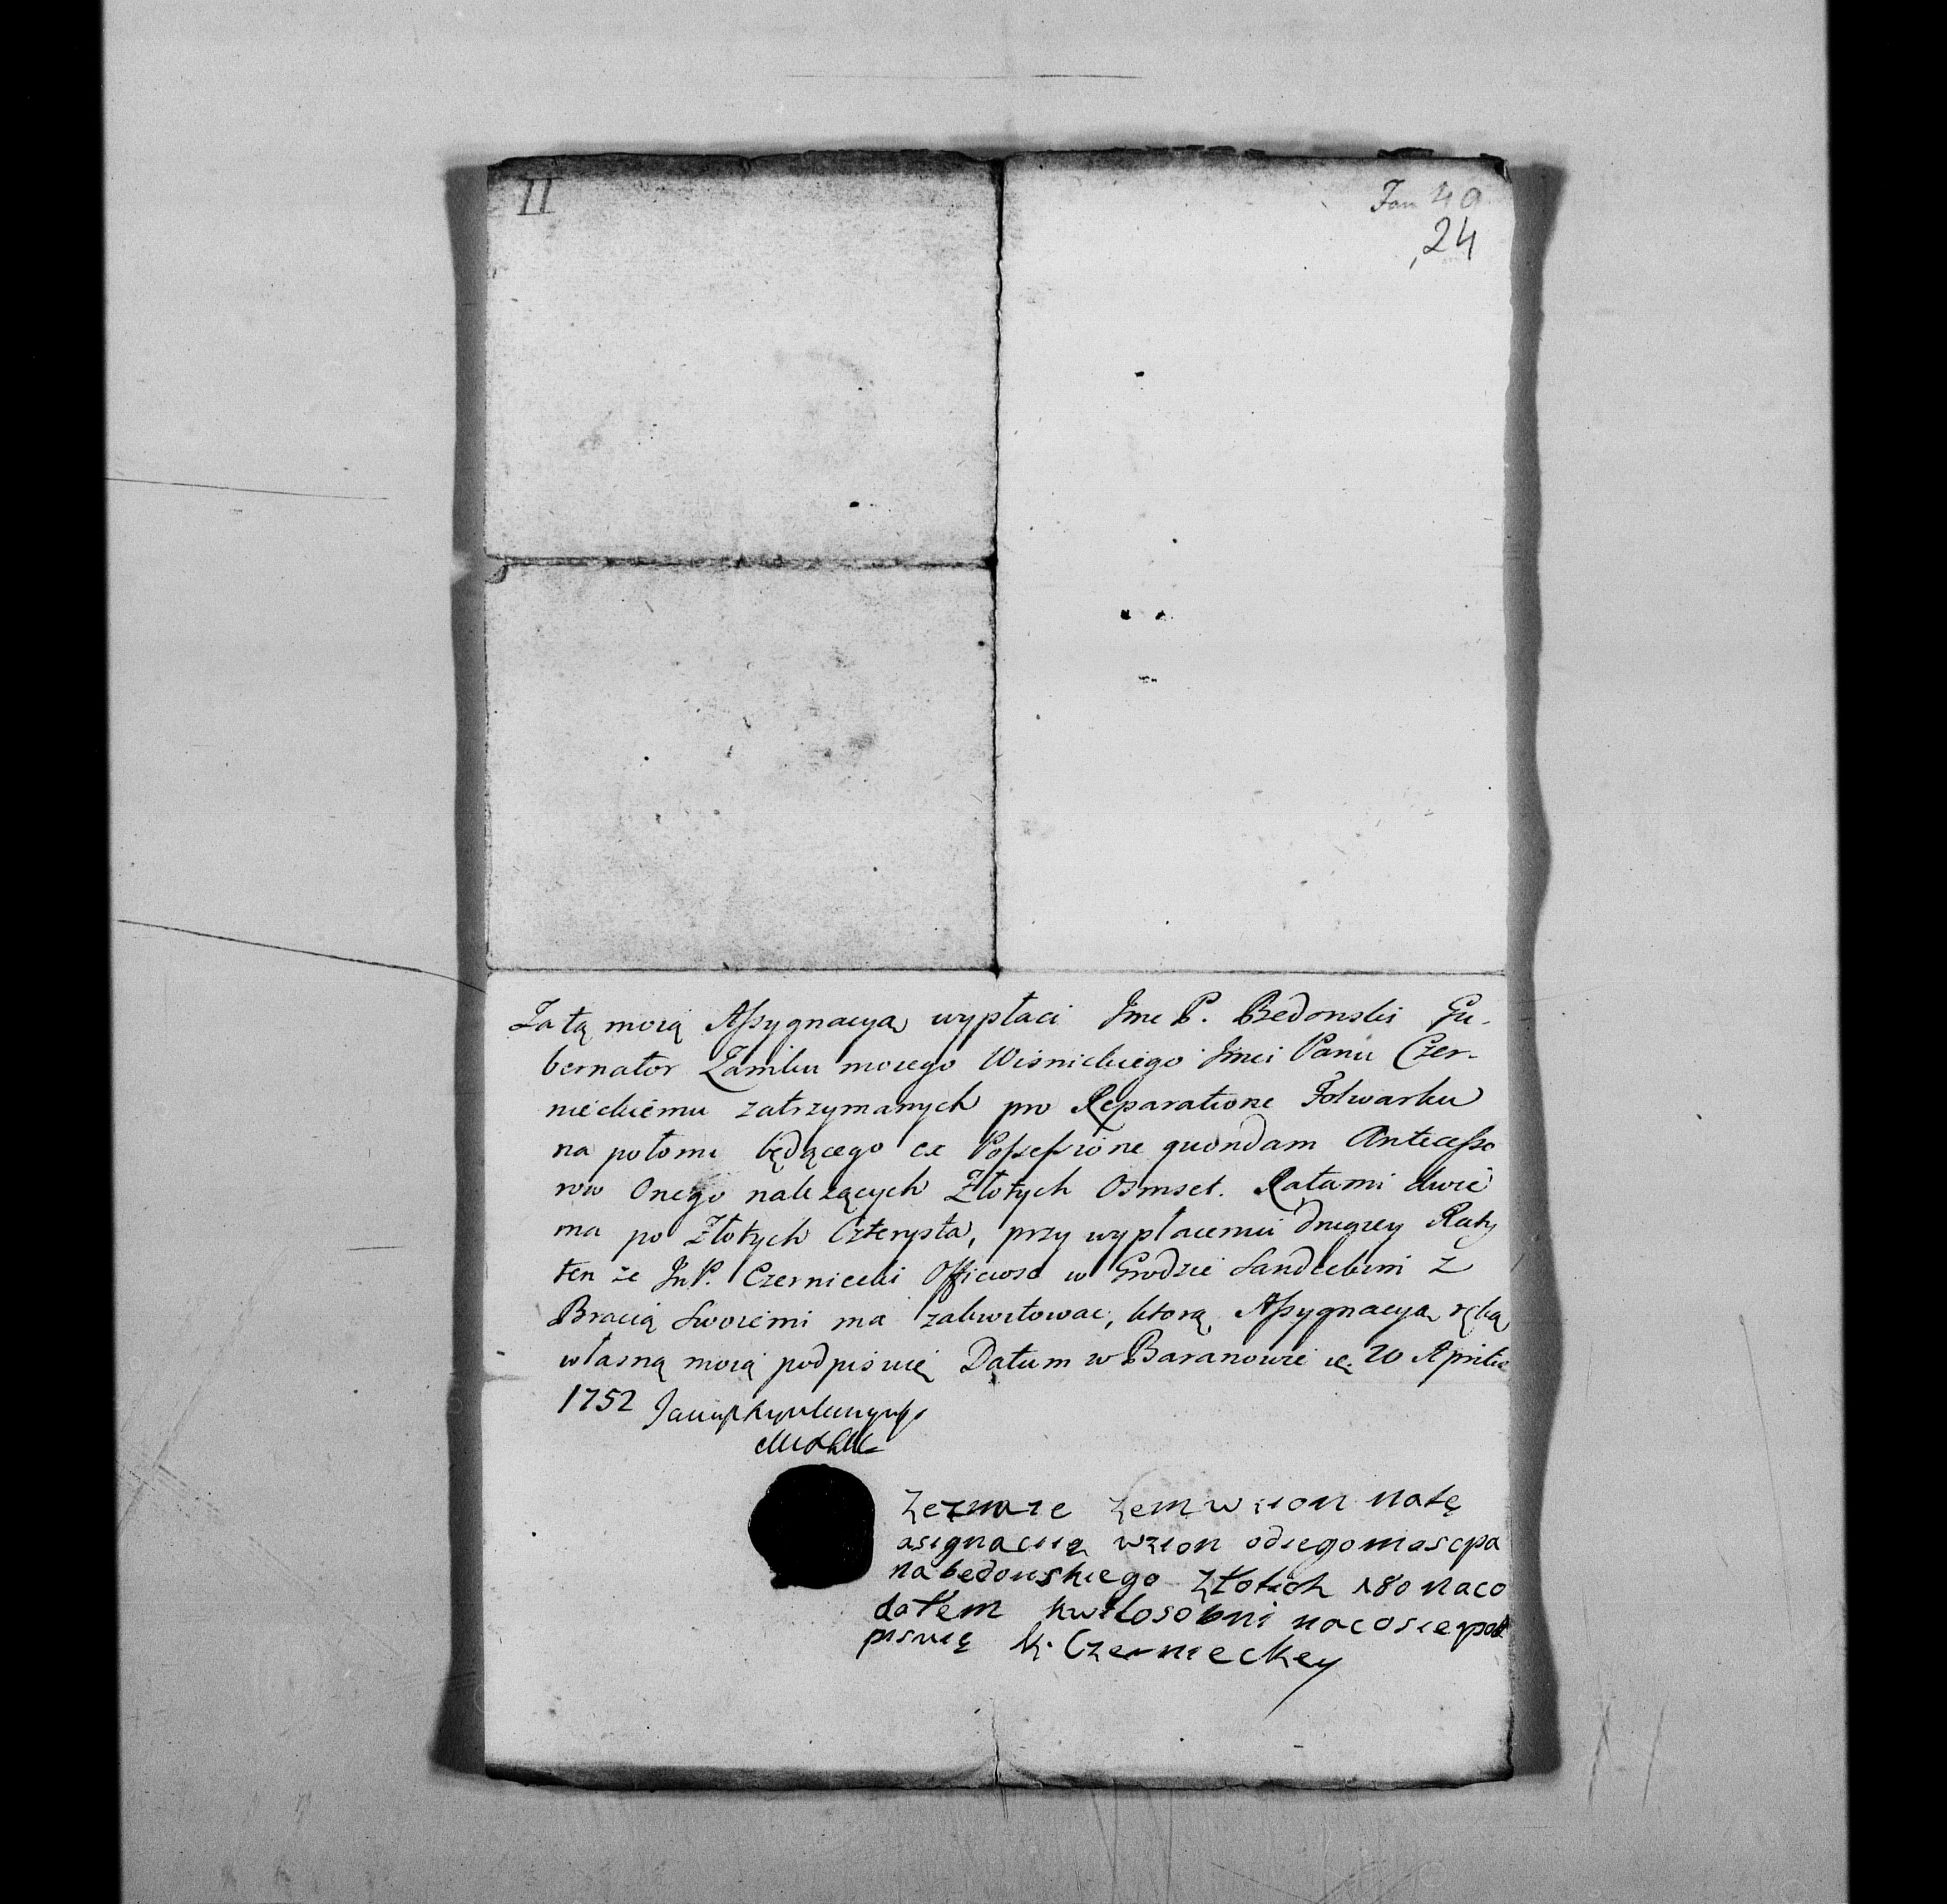 II
24
Za tą moią Assygnacyą wypłaci Jmc P. Bedonski Gu-
bernator Zamku mojego Wisnickiego Jmci Panu Czer-
nieckiemu zatrzymanych pro Reparatione Folwarku
na połomu będącego ex Possessione quondam Antecesso
row Onego należących Złotych Osmset. Ratami dwie
ma po Złotych Czterysta, przy wypłaceniu drugiey Raty
ten że JmP. Czerniecki Officiose w Grodzie Sandeckim z
Bracią Swoiemi ma zakwitowac, ktorą Assygnacyą ręką
własną moią podpisuię Datum w Baranowie d. 20 Aprilis
1752
Zeznaie zem wzion natę
asignaciią wzion odiegomoscpa
nabedonskiego złotich 180 naco
dałem kwit osobni nacosiepod
pisuię k. Czernieckey